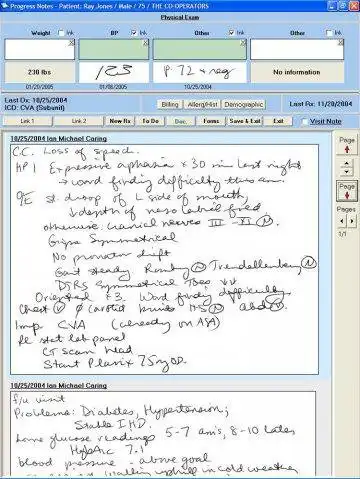 Progress Notes - Patient: Ray Jones / Male / 75 / THE CO-OPERATORS
Physical Exam
Weight Ink BP Ink Other Ink Other Ink
230 lbs P 72 + reg No information
01/20/2005 01/08/2005 10/25/2004
Last Dx: 10/25/2004
ICD: CVA (Subunit)
Billing Allerg/Hist Demographic
Last Rx: 11/20/2004
Link 1 Link 2 New Rx To Do Doc. Forms Save & Exit Exit Visit Note
10/25/2004 Ian Michael Caring
C.C. Loss of speed.
HPI Expressive aphasia x 30 min last night
→ word finding difficulty this am.
O/E st. droop of L side of mouth,
↓ depth of nasolabial fold
otherwise cranial nerves III - XI N
Grips Symmetrical
No pronator drift
Gait steady Romberg N Trendellenberg N
DTRS symmetrical Toes ↓↓
Oriented x3. Word findg difficulty
Chest carotid bruits HS N abd N
Imp CVA (already on ASA)
Rx stat lab panel
CT scan head
Start Plavix 75mg OD.
10/25/2004 Ian Michael Caring
f/u visit
Problems: Diabetes, Hypertension,
Stable IHD.
home glucose readings 5-7 am's, 8-10 later
HgbA1c 7.1
blood pressure - above goal
walking uphill in cold weather
Page
Page
Pages
1/1